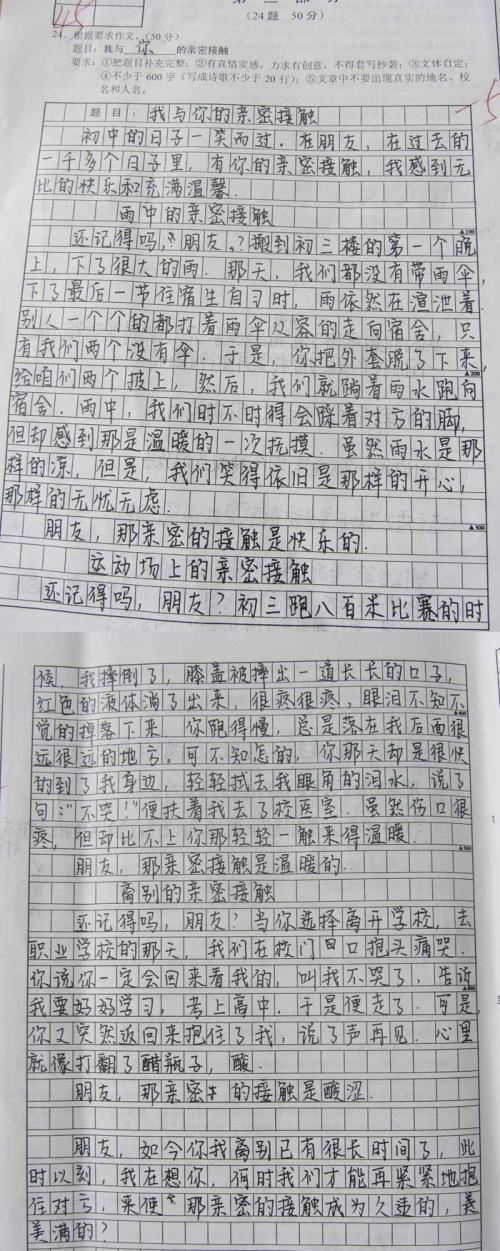 45
第二部分
(24题 50分)
24. 根据要求作文。(50分)
题目:我与 你 的亲密接触
要求:①把题目补充完整;②有真情实感,力求有创意,不得套写抄袭;③文体自定;
④不少于 600 字(写成诗歌不少于 20 行);⑤文章中不要出现真实的地名、校
名和人名。
-5
题目:我与你的亲密接触
初中的日子一笑而过.在朋友,在过去的
一千多个日子里,有你的亲密接触,我感到无
比的快乐和充满温馨.
雨中的亲密接触
▲100
还记得吗,“朋友,?搬到初三楼的第一个晚
上,下了很大的雨.那天,我们都没有带雨伞,
下了最后一节住宿生自习时,雨依然在渲泄着.
别人一个个的都打着雨伞从容的走向宿舍,只
有我们两个没有伞.于是,你把外套脱了下来,
▲200
给咱们两个披上,然后,我们就踏着雨水跑向
宿舍.雨中,我们时不时得会踩着对方的脚,
但却感到那是温暖的一次抚摸.虽然雨水是那
样的凉,但是,我们笑得依旧是那样的开心,
那样的无忧无虑.
▲300
朋友,那亲密的接触是快乐的.
运动场上的亲密接触
还记得吗,朋友?初三跑八百米比赛的时
候,我摔倒了,膝盖被摔出一道长长的口子,
红色的液体淌了出来,很疼很疼,眼泪不知不
▲400
觉的掉落下来.你跑得慢,总是落在我后面很
远很远的地方,可不知怎的,你那天却是很快
的到了我身边,轻轻拭去我眼角的泪水,说了
句:“不哭!”便扶着我去了校医室.虽然伤口很
疼,但却比不上你那轻轻一触来得温暖.
▲500
朋友,那亲密接触是温暖的.
离别的亲密接触
还记得吗,朋友?当你选择离开学校,去
职业学校的那天,我们在校门口抱头痛哭.
你说你一定会回来看我的,叫我不哭了,告诉
▲600
我要好好学习,考上高中.于是便走了.可是,
你又突然返回来抱住了我,说了声再见.心里
就像打翻了醋瓶子,酸.
朋友,那亲密的接触是酸涩.
朋友,如今你我离别已有很长时间了,此
时以刻,我在想你,何时我们才能再紧紧地抱
住对方,来使那亲密的接触成为久违的,美
美满的?